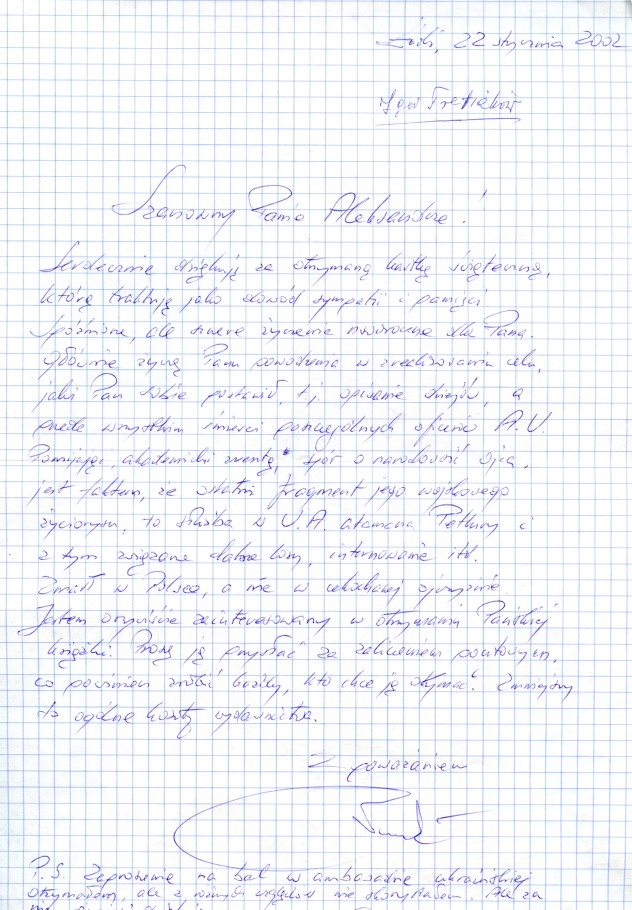 Łódź, 22 stycznia 2002
Igor Tretiaków
Szanowny Panie Aleksandrze!
Serdecznie dziękuję za otrzymaną kartkę świąteczną,
którą traktuję jako dowód sympatii i pamięci
Spóźnione, ale szczere życzenia noworoczne dla Pana.
Głównie życzę Panu powodzenia w zrealizowaniu celu,
jaki Pan sobie postawił, t.j. opisanie dziejów, a
przede wszystkim śmierci poszczególnych oficerów A.U.
Pomijając, akademicki zresztą, spór o narodowość ojca,
jest faktem, że ostatni fragment jego wojskowego
życiorysu, to służba w U.A. atamana Petlury i
z tym związane dalsze losy, internowanie itd.
Zmarł w Polsce, a nie w ukochanej ojczyźnie.
Jestem oczywiście zainteresowany w otrzymaniu Pańskiej
książki. Proszę ją przysłać za zaliczeniem pocztowym,
co powinien zrobić każdy, kto chce ją otrzymać. Zmniejszy
to ogólne koszty wydawnictwa.
Z poważaniem
P.S. Zaproszenie na bal w ambasadzie ukraińskiej
otrzymałem, ale z różnych względów nie skorzystałem. Ale za